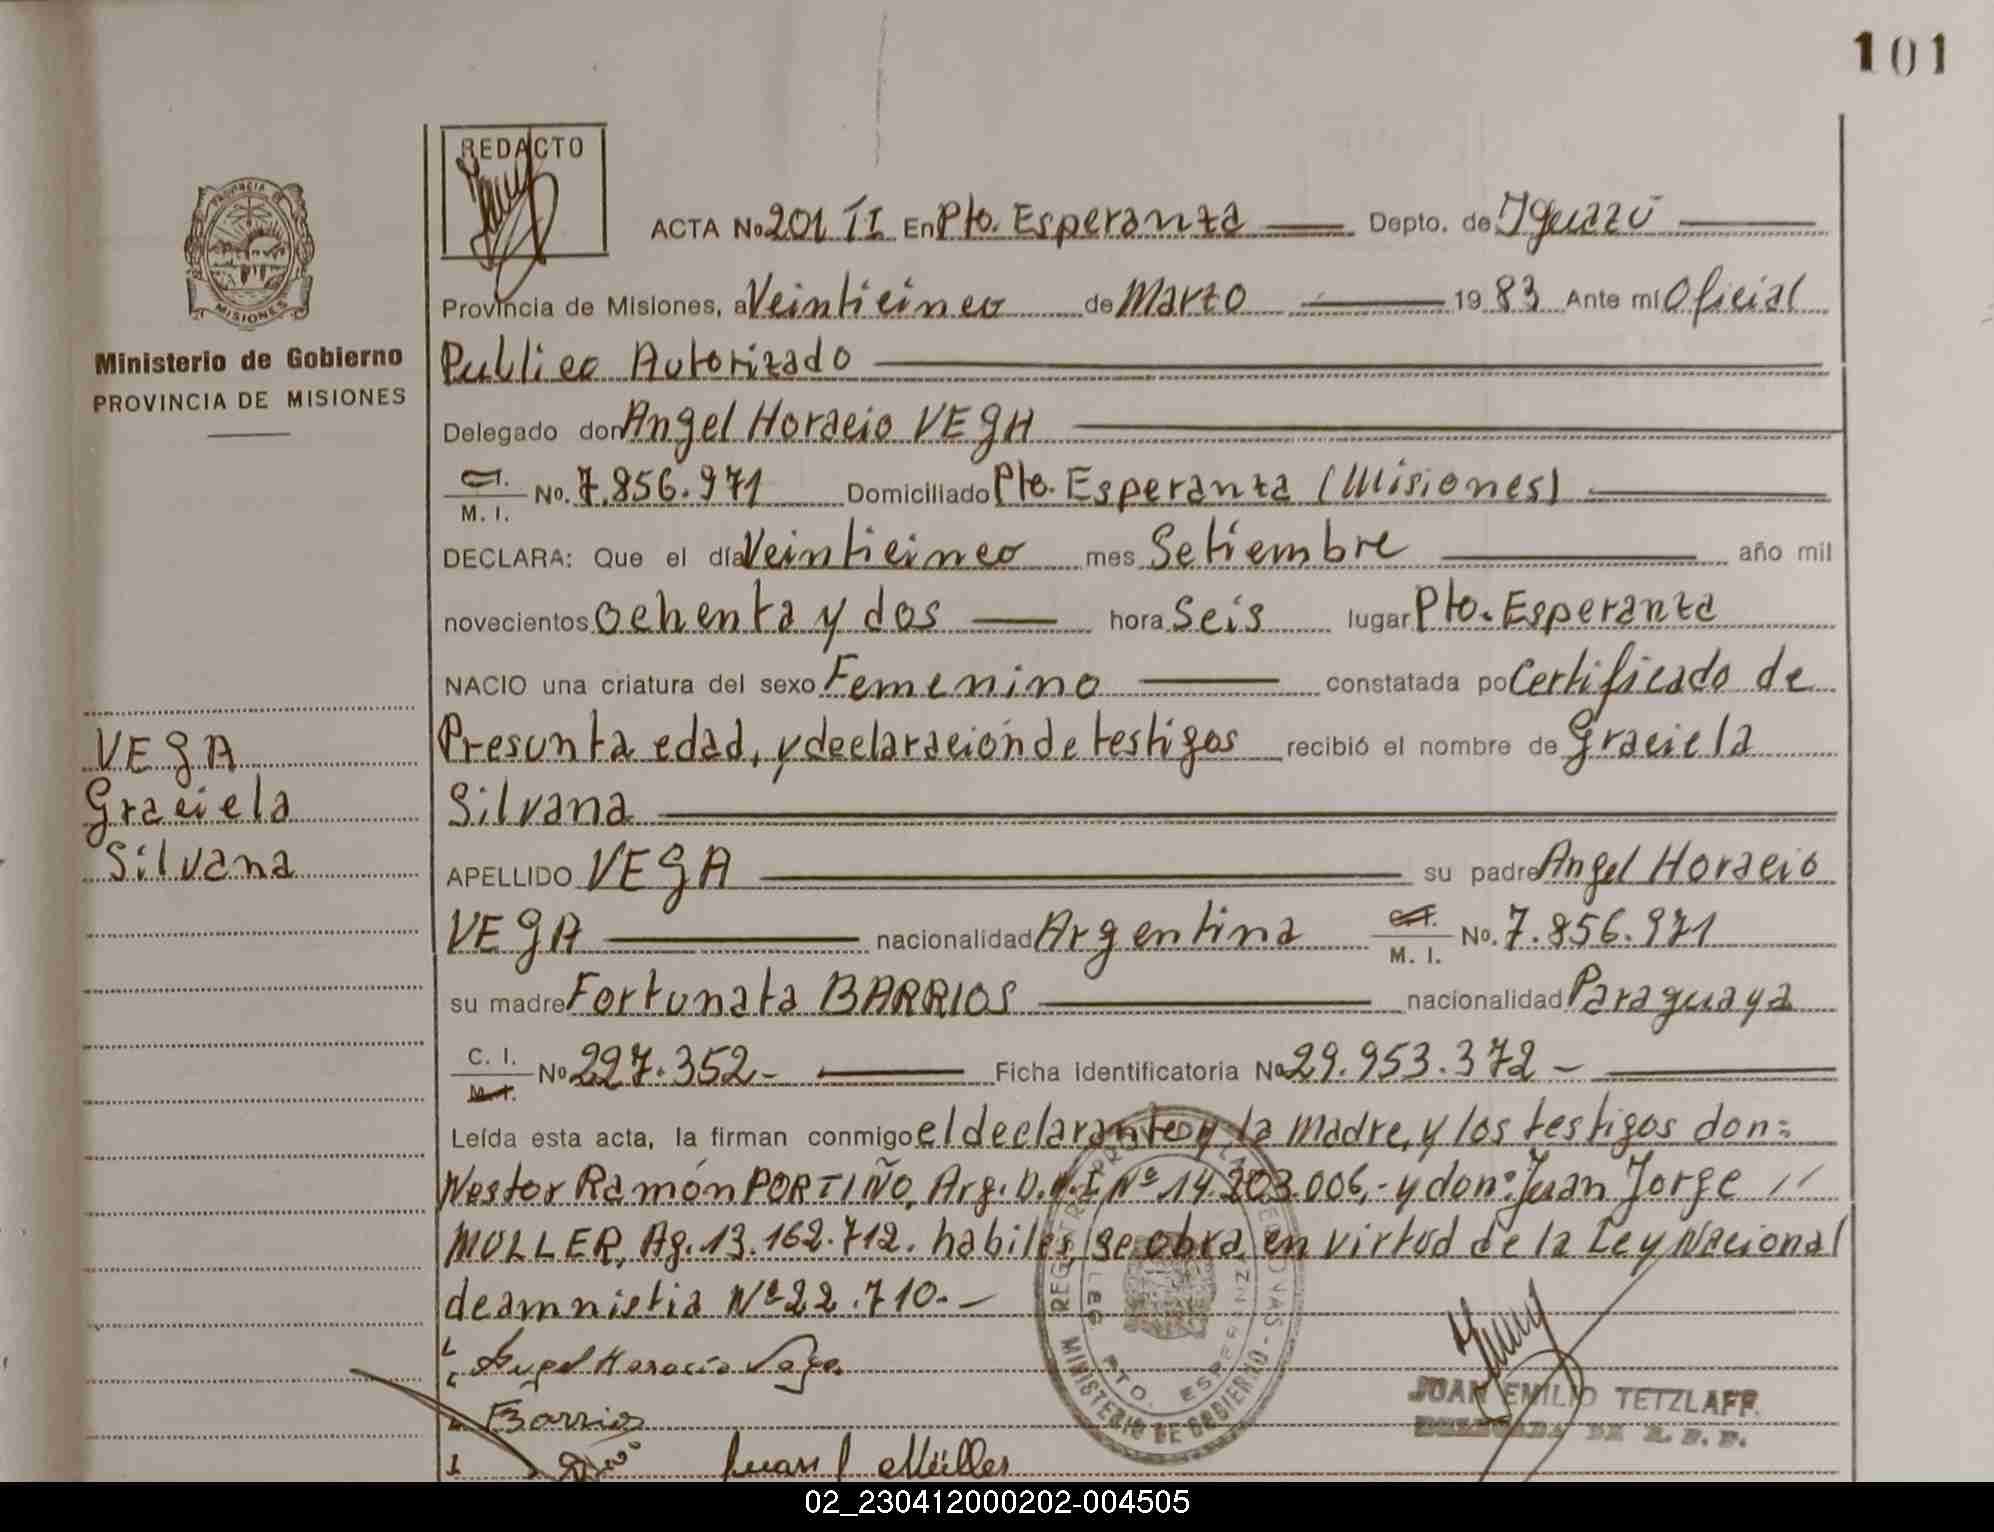 101
REDACTO
ACTA No 201 II En Pto. Esperanza Depto. de Iguazú
Provincia de Misiones, a Veinticinco de Marzo 19 83 Ante mí Oficial
Publico Autorizado
Delegado don Angel Horacio VEGA
C.I. M. I. No. 7.856.971 Domiciliado Pto. Esperanza (Misiones)
DECLARA: Que el día Veinticinco mes Setiembre año mil
novecientos Ochenta y dos hora Seis lugar Pto. Esperanza
NACIO una criatura del sexo Femenino constatada po Certificado de
Presunta edad, y declaración de testigos recibió el nombre de Graciela
Silvana
APELLIDO VEGA su padre Angel Horacio
VEGA nacionalidad Argentina C.I. M. I. No. 7.856.971
su madre Fortunata BARRIOS nacionalidad Paraguaya
C. I. M.I. No 227.352- Ficha identificatoria No 29.953.372-
Leída esta acta, la firman conmigo el declarante y la madre, y los testigos don:
Nestor Ramón PORTIÑO, Arg. D.N.I Nº 14.203.006,- y don: Juan Jorge //
MULLER, Ag. 13.162.712. habiles, se obra en virtud de la Ley Nacional
de amnistia Nº 22.710.-
Angel Horacio Vega
Barrios
Juan J Müller
JUAN EMILIO TETZLAFF
DE R. P. P.
MINISTERIO DE GOBIERNO
PTO. ESPERANZA
PROVINCIA DE
MISIONES
Ministerio de Gobierno
PROVINCIA DE MISIONES
VEGA
Graciela
Silvana
02_230412000202-004505